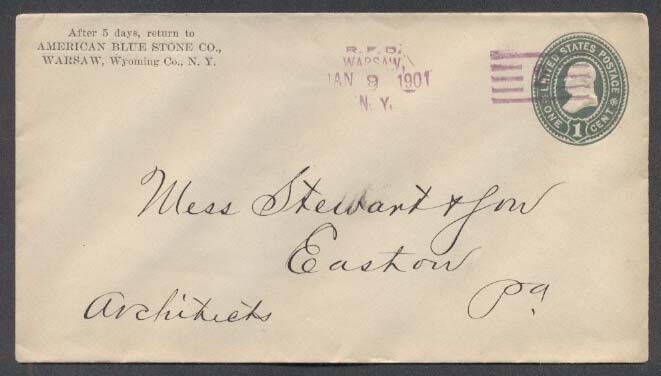 After 5 days, return to
AMERICAN BLUE STONE CO.,
WARSAW, Wyoming Co., N. Y.
R. F. D.
WARSAW,
JAN 9 1901
N. Y.
UNITED STATES POSTAGE
ONE 1 CENT
Mess Stewart & Son
Easton
Architects Pa